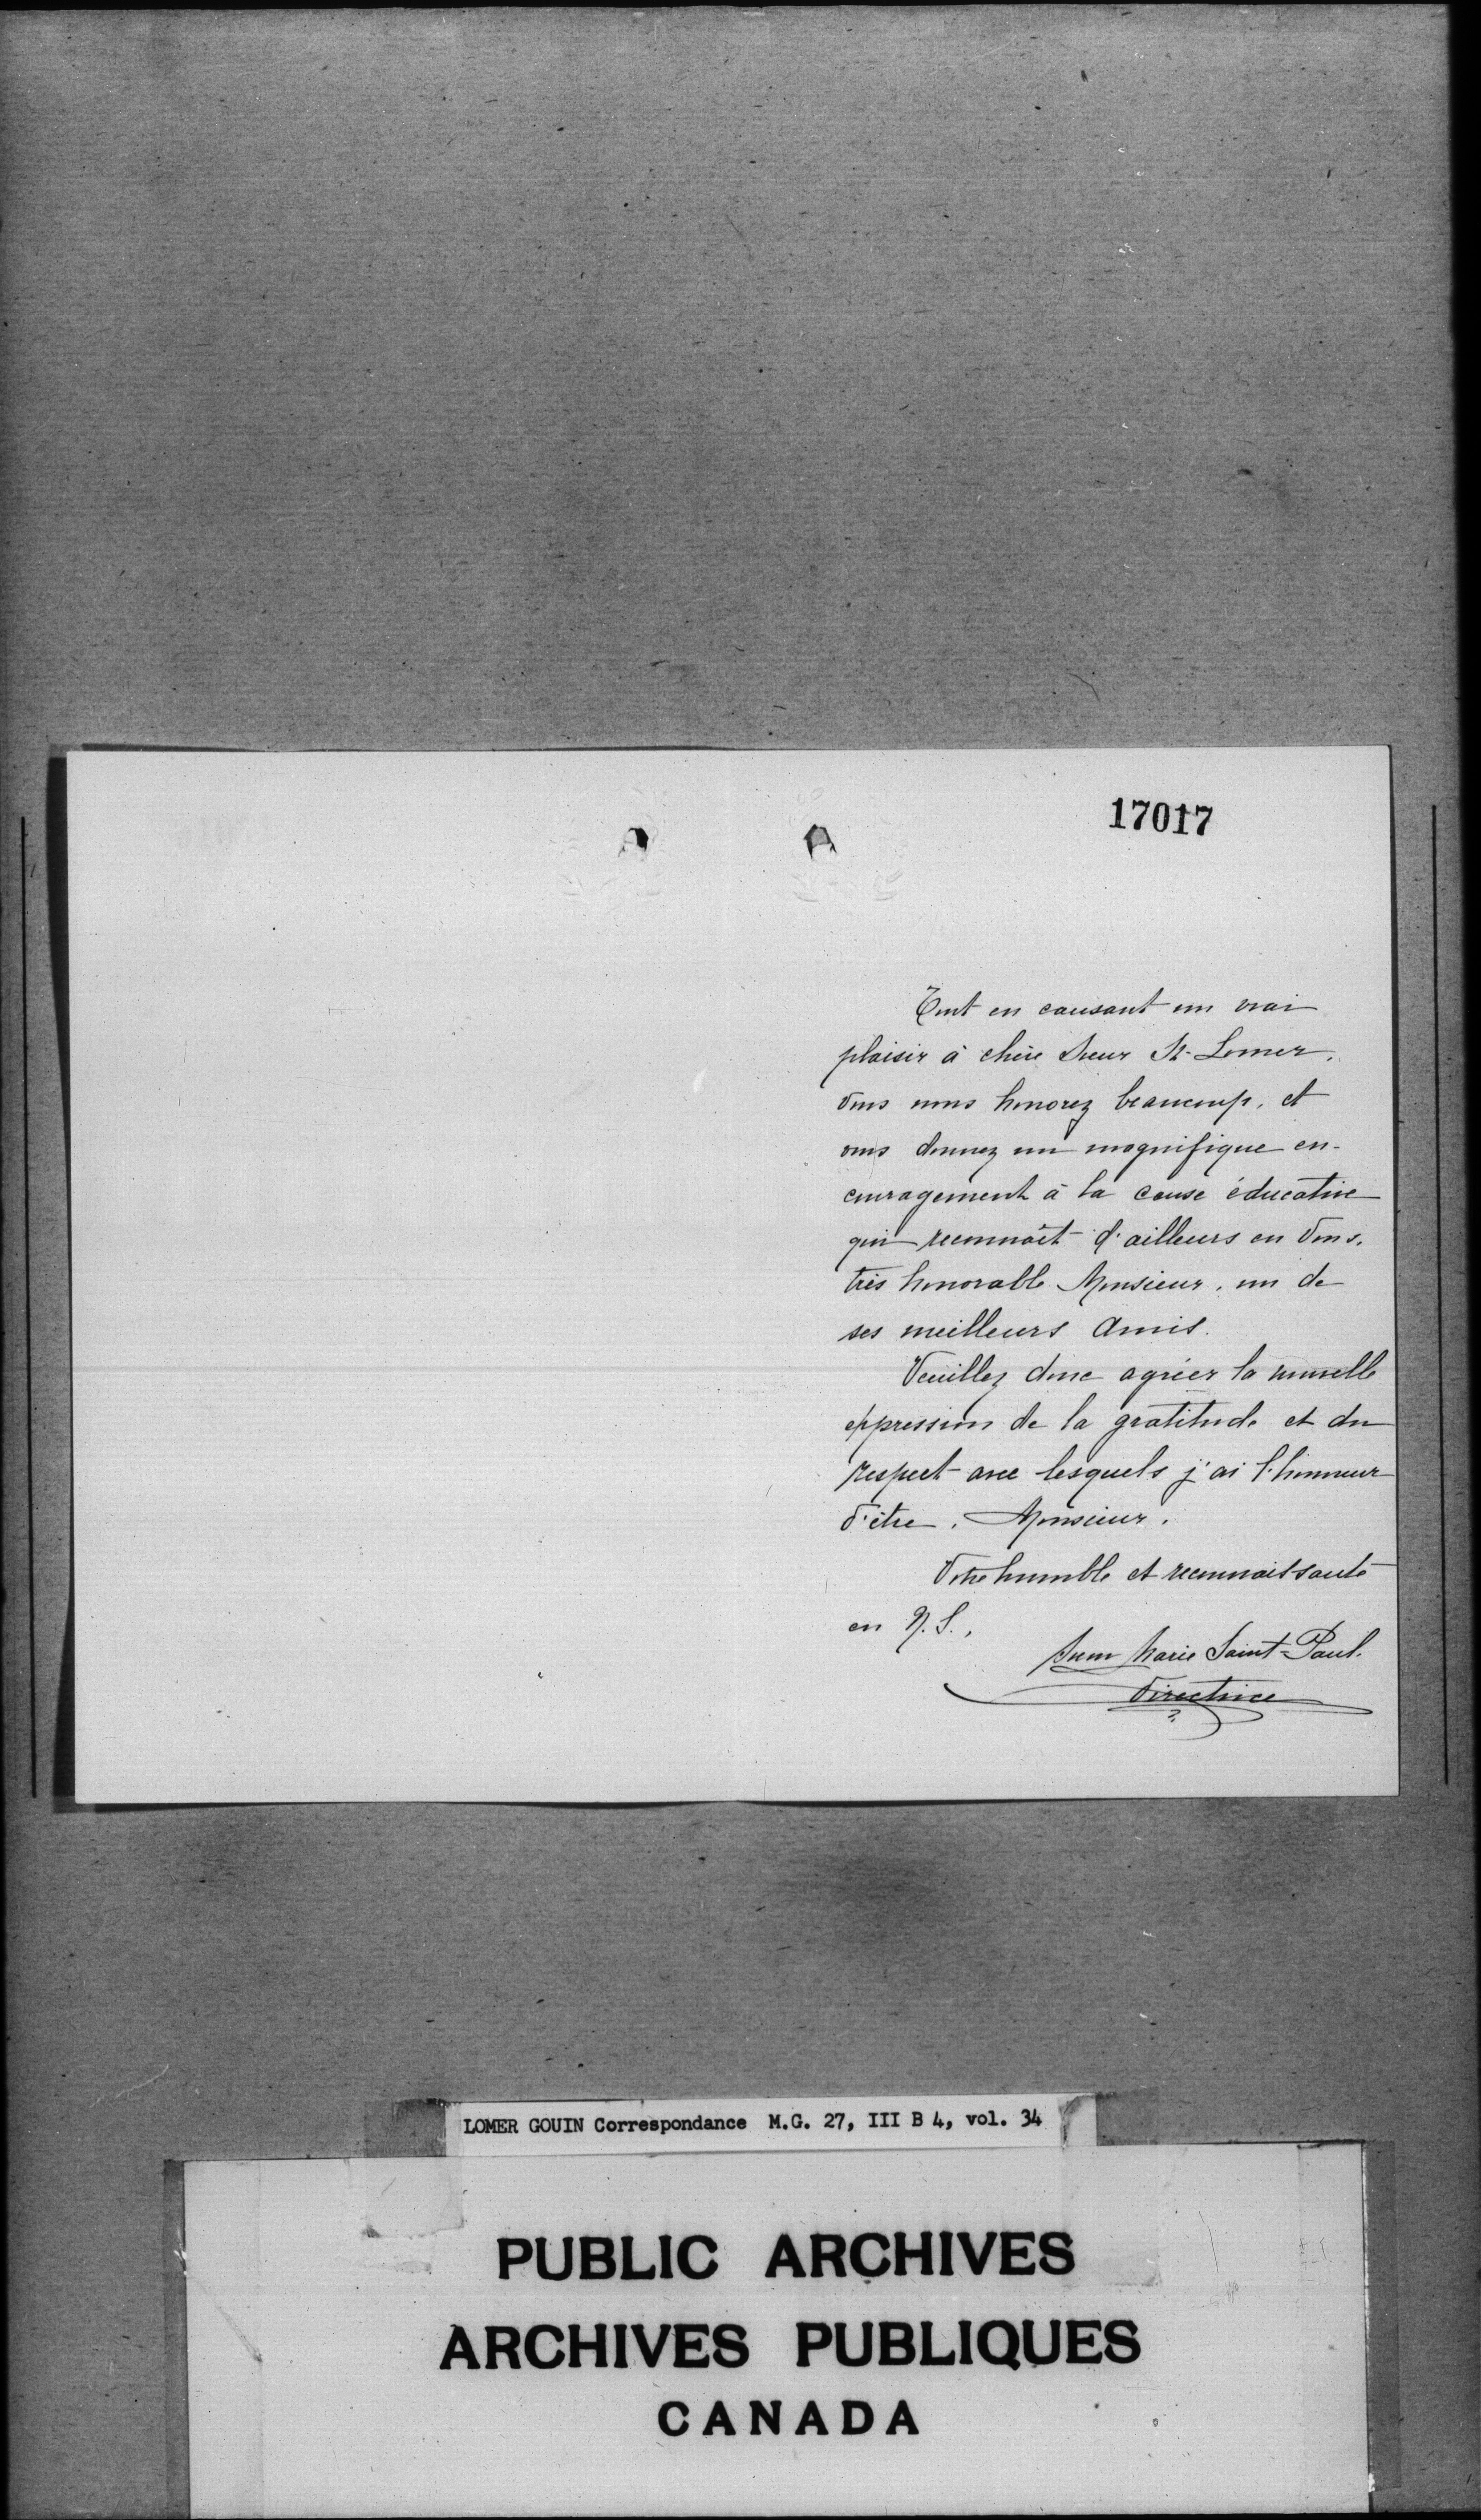 17017
Tout en causant un vrai
plaisir à chère Sœur St-Lomer,
Vous nous honorez beaucoup, et
vous donnez un magnifique en-
couragement à la cause éducative
qui reconnaît d'ailleurs en Vous,
très honorable Monsieur, un de
ses meilleurs amis.
Veuillez donc agréer la nouvelle
expression de la gratitude et du
respect avec lesquels j'ai l'honneur
d'être, Monsieur,
Votre humble et reconnaissante
en N. S.,
Sœur Marie Saint-Paul.
Directrice
LOMER GOUIN Correspondance M.G. 27, III B 4, vol. 34
PUBLIC ARCHIVES
ARCHIVES PUBLIQUES
CANADA